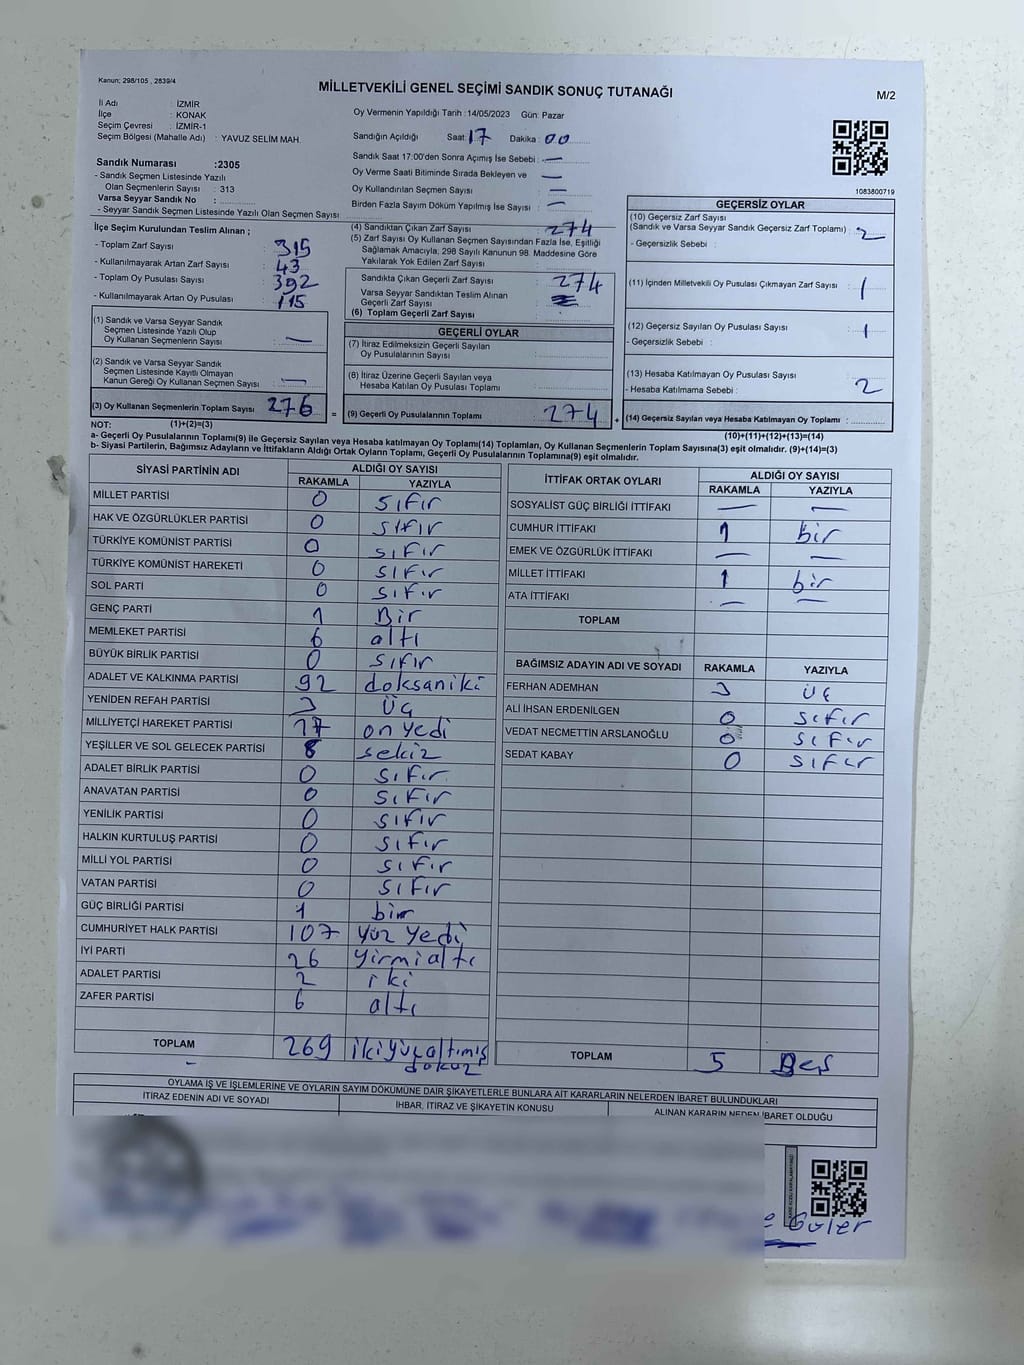 Kanun; 298/105 , 2839/4
MİLLETVEKİLİ GENEL SEÇİMİ SANDIK SONUÇ TUTANAĞI
M/2
İl Adı : İZMİR
İlçe : KONAK
Seçim Çevresi : İZMİR-1
Seçim Bölgesi (Mahalle Adı) : YAVUZ SELİM MAH.
Sandık Numarası :2305
- Sandık Seçmen Listesinde Yazılı
Olan Seçmenlerin Sayısı : 313
Varsa Seyyar Sandık No :
- Seyyar Sandık Seçmen Listesinde Yazılı Olan Seçmen Sayısı
Oy Vermenin Yapıldığı Tarih : 14/05/2023 Gün: Pazar
Sandığın Açıldığı Saat: 17 Dakika : 00
Sandık Saat 17:00'den Sonra Açımış İse Sebebi : —
Oy Verme Saati Bitiminde Sırada Bekleyen ve —
Oy Kullandırılan Seçmen Sayısı : —
Birden Fazla Sayım Döküm Yapılmış İse Sayısı : —
1083800719
İlçe Seçim Kurulundan Teslim Alınan ;
- Toplam Zarf Sayısı : 315
- Kullanılmayarak Artan Zarf Sayısı : 43
- Toplam Oy Pusulası Sayısı : 392
- Kullanılmayarak Artan Oy Pusulası : 115
(1) Sandık ve Varsa Seyyar Sandık
Seçmen Listesinde Yazılı Olup
Oy Kullanan Seçmenlerin Sayısı : —
(2) Sandık ve Varsa Seyyar Sandık
Seçmen Listesinde Kayıtlı Olmayan
Kanun Gereği Oy Kullanan Seçmen Sayısı : —
(3) Oy Kullanan Seçmenlerin Toplam Sayısı : 276 =
(4) Sandıktan Çıkan Zarf Sayısı : 274
(5) Zarf Sayısı Oy Kullanan Seçmen Sayısından Fazla İse, Eşitliği
Sağlamak Amacıyla, 298 Sayılı Kanunun 98. Maddesine Göre
Yakılarak Yok Edilen Zarf Sayısı :
Sandıkta Çıkan Geçerli Zarf Sayısı : 274
Varsa Seyyar Sandıktan Teslim Alınan
Geçerli Zarf Sayısı :
(6) Toplam Geçerli Zarf Sayısı :
GEÇERLİ OYLAR
(7) İtiraz Edilmeksizin Geçerli Sayılan
Oy Pusulalarının Sayısı :
(8) İtiraz Üzerine Geçerli Sayılan veya
Hesaba Katılan Oy Pusulası Toplamı :
(9) Geçerli Oy Pusulalarının Toplamı : 274 +
GEÇERSİZ OYLAR
(10) Geçersiz Zarf Sayısı
(Sandık ve Varsa Seyyar Sandık Geçersiz Zarf Toplamı) : 2
- Geçersizlik Sebebi :
(11) İçinden Milletvekili Oy Pusulası Çıkmayan Zarf Sayısı : 1
(12) Geçersiz Sayılan Oy Pusulası Sayısı : 1
- Geçersizlik Sebebi :
(13) Hesaba Katılmayan Oy Pusulası Sayısı : 2
- Hesaba Katılmama Sebebi :
(14) Geçersiz Sayılan veya Hesaba Katılmayan Oy Toplamı :
NOT: (1)+(2)=(3) (10)+(11)+(12)+(13)=(14)
a- Geçerli Oy Pusulalarının Toplamı(9) ile Geçersiz Sayılan veya Hesaba katılmayan Oy Toplamı(14) Toplamları, Oy Kullanan Seçmenlerin Toplam Sayısına(3) eşit olmalıdır. (9)+(14)=(3)
b- Siyasi Partilerin, Bağımsız Adayların ve İttifakların Aldığı Ortak Oyların Toplamı, Geçerli Oy Pusulalarının Toplamına(9) eşit olmalıdır.
SİYASİ PARTİNİN ADI ALDIĞI OY SAYISI
RAKAMLA YAZIYLA
MİLLET PARTİSİ 0 sıfır
HAK VE ÖZGÜRLÜKLER PARTİSİ 0 sıfır
TÜRKİYE KOMÜNİST PARTİSİ 0 sıfır
TÜRKİYE KOMÜNİST HAREKETİ 0 sıfır
SOL PARTİ 0 sıfır
GENÇ PARTİ 1 Bir
MEMLEKET PARTİSİ 6 altı
BÜYÜK BİRLİK PARTİSİ 0 sıfır
ADALET VE KALKINMA PARTİSİ 92 doksaniki
YENİDEN REFAH PARTİSİ 3 üç
MİLLİYETÇİ HAREKET PARTİSİ 17 on yedi
YEŞİLLER VE SOL GELECEK PARTİSİ 8 sekiz
ADALET BİRLİK PARTİSİ 0 sıfır
ANAVATAN PARTİSİ 0 sıfır
YENİLİK PARTİSİ 0 sıfır
HALKIN KURTULUŞ PARTİSİ 0 sıfır
MİLLİ YOL PARTİSİ 0 sıfır
VATAN PARTİSİ 0 sıfır
GÜÇ BİRLİĞİ PARTİSİ 1 bir
CUMHURİYET HALK PARTİSİ 107 yüz yedi
İYİ PARTİ 26 yirmialtı
ADALET PARTİSİ 2 iki
ZAFER PARTİSİ 6 altı
TOPLAM 269 ikiyüzaltımış
dokuz
İTTİFAK ORTAK OYLARI ALDIĞI OY SAYISI
RAKAMLA YAZIYLA
SOSYALİST GÜÇ BİRLİĞİ İTTİFAKI — —
CUMHUR İTTİFAKI 1 bir
EMEK VE ÖZGÜRLÜK İTTİFAKI — —
MİLLET İTTİFAKI 1 bir
ATA İTTİFAKI — —
TOPLAM
BAĞIMSIZ ADAYIN ADI VE SOYADI RAKAMLA YAZIYLA
FERHAN ADEMHAN 3 üç
ALİ İHSAN ERDENİLGEN 0 sıfır
VEDAT NECMETTİN ARSLANOĞLU 0 sıfır
SEDAT KABAY 0 sıfır
TOPLAM 5 Beş
OYLAMA İŞ VE İŞLEMLERİNE VE OYLARIN SAYIM DÖKÜMÜNE DAİR ŞİKAYETLERLE BUNLARA AİT KARARLARIN NELERDEN İBARET BULUNDUKLARI
İTİRAZ EDENİN ADI VE SOYADI İHBAR, İTİRAZ VE ŞİKAYETİN KONUSU ALINAN KARARIN NEDEN İBARET OLDUĞU
Güler